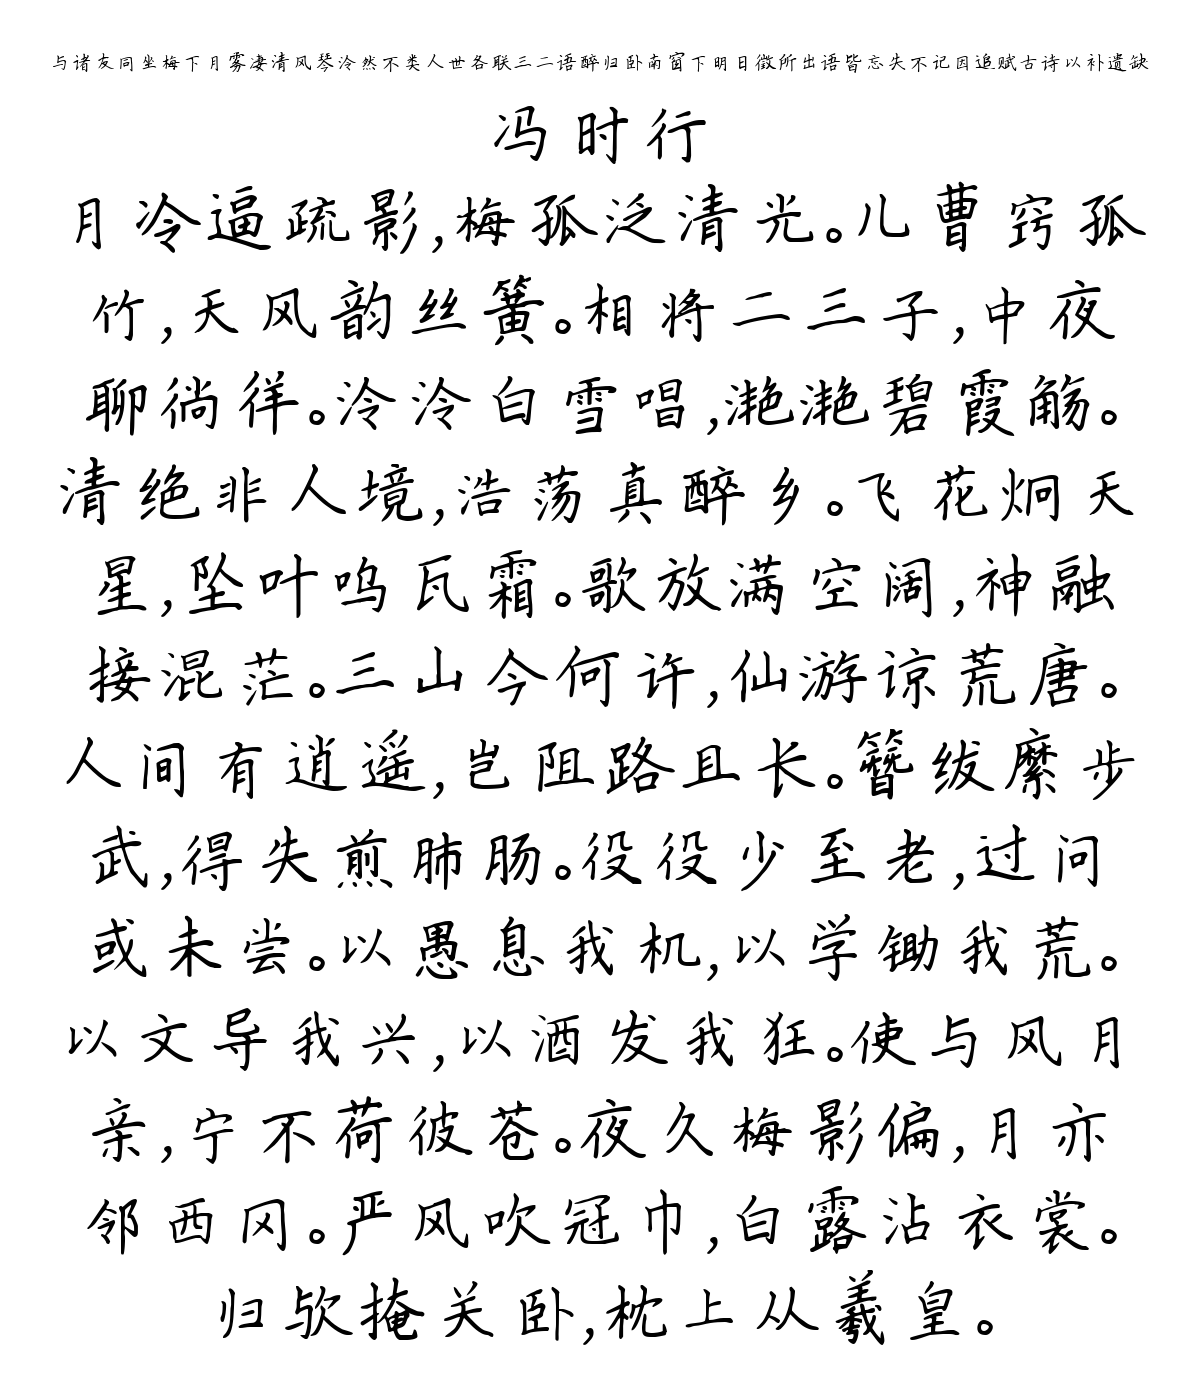 与诸友同坐梅下月雾凄清风琴泠然不类人世各联三二语醉归卧南窗下明日徵所出语皆忘失不记因追赋古诗以补遗缺
冯时行
月冷逼疏影,梅孤泛清光。儿曹窍孤
竹,天风韵丝簧。相将二三子,中夜
聊徜徉。泠泠白雪唱,滟滟碧霞觞。
清绝非人境,浩荡真醉乡。飞花炯天
星,坠叶呜瓦霜。歌放满空阔,神融
接混茫。三山今何许,仙游谅荒唐。
人间有逍遥,岂阻路且长。簪绂縻步
武,得失煎肺肠。役役少至老,过问
或未尝。以愚息我机,以学锄我荒。
以文导我兴,以酒发我狂。使与风月
亲,宁不荷彼苍。夜久梅影偏,月亦
邻西冈。严风吹冠巾,白露沾衣裳。
归欤掩关卧,枕上从羲皇。